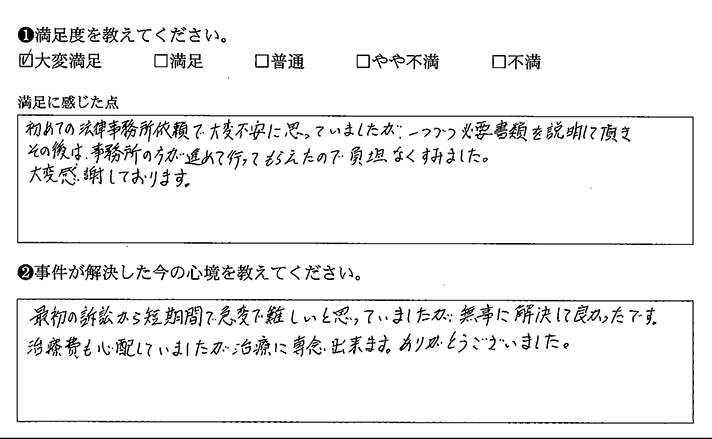 ❶満足度を教えてください。
☑大変満足 □満足 □普通 □やや不満 □不満
満足に感じた点
初めての法律事務所依頼で大変不安に思っていましたが、一つづつ必要書類を説明して頂き
その後は、事務所の方が進めて行ってもらえたので負担なくすみました。
大変感謝しております。
❷事件が解決した今の心境を教えてください。
最初の訴訟から短期間で急変で難しいと思っていましたが、無事に解決して良かったです。
治療費も心配していましたが治療に専念出来ます。ありがとうございました。